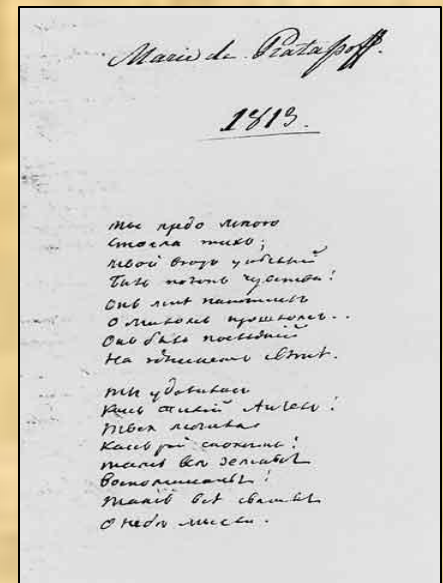 Marie de Pratasoff.
1813.
Ты предо мною
Стояла тихо;
Твой взоръ унылый
Былъ полонъ чувства!
Онъ мнѣ напомнилъ
О миломъ прошломъ..
Онъ былъ послѣдній
На здешнемъ свѣтѣ.
Ты удалилась
Какъ тихій Ангелъ!
Твоя могила
Какъ рай спокойна!
Тамъ всѣ земныя
Воспоминанья!
Тамъ всѣ святыя
О небѣ мысли.